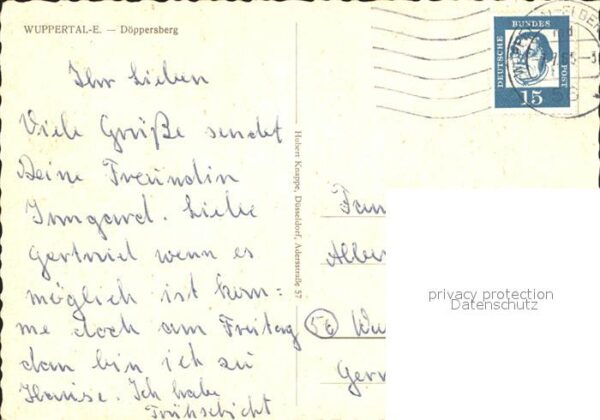 WUPPERTAL-E. — Döppersberg
Ihr Lieben
Viele Grüße sendet
Deine Freundin
Irmgard. Liebe
Gertrud wenn es
möglich ist kom=
me doch am Freitag
dan bin ich zu
Hause. Ich habe
Frühschicht
Hubert Knappe, Düsseldorf, Adersstraße 57
DEUTSCHE BUNDES POST
15
Fam
Alber
56 Wu
Germ
privacy protection
Datenschutz